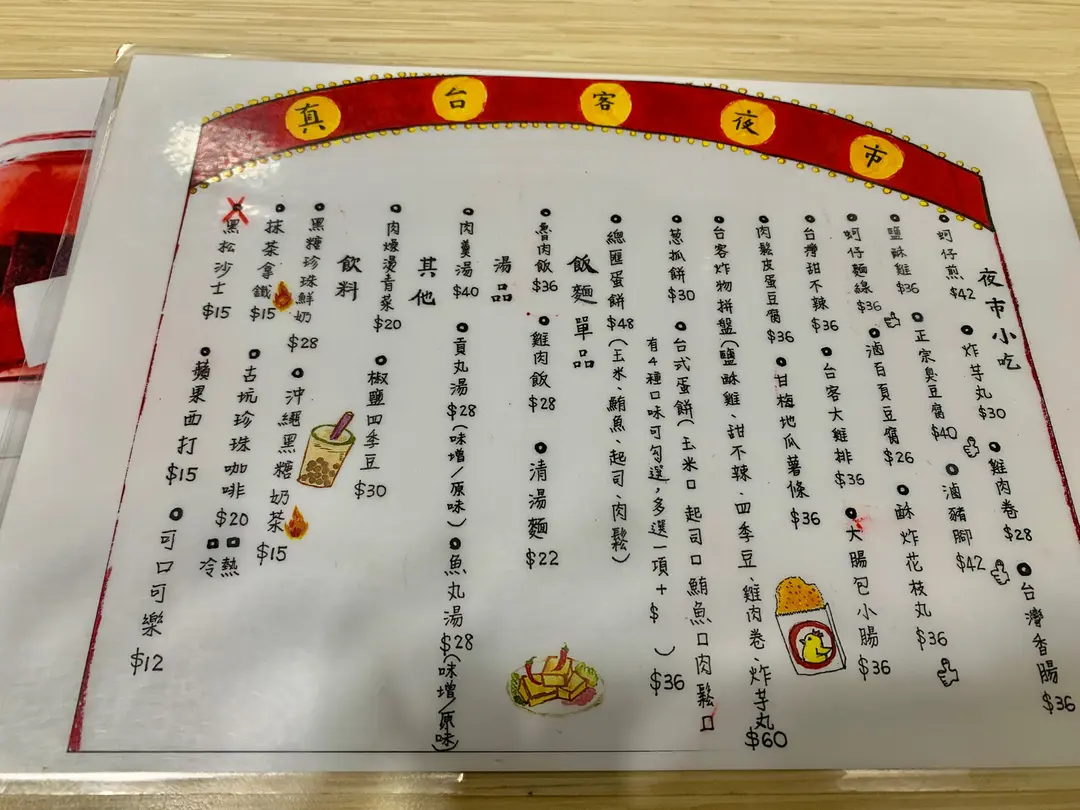 真台客夜市
夜市小吃
蚵仔煎 $42
炸芋丸 $30
雞肉卷 $28
台灣香腸 $36
鹽酥雞 $36
正宗臭豆腐 $40
滷豬腳 $42
蚵仔麵線 $36
滷百頁豆腐 $26
酥炸花枝丸 $36
台灣甜不辣 $36
台客大雞排 $36
大腸包小腸 $36
肉鬆皮蛋豆腐 $36
甘梅地瓜薯條 $36
台客炸物拼盤(鹽酥雞、甜不辣、四季豆、雞肉卷、炸芋丸 $60
葱抓餅 $30
台式蛋餅(玉米口 起司口 鮪魚口 肉鬆口
有4種口味可勾選,多選一項+$ ) $36
總匯蛋餅 $48(玉米、鮪魚、起司、肉鬆)
飯麵單品
魯肉飯 $36
雞肉飯 $28
清湯麵 $22
湯品
肉羹湯 $40
貢丸湯 $28(味增/原味)
魚丸湯 $28(味增/原味)
其他
肉燥燙青菜 $20
椒鹽四季豆 $30
飲料
黑糖珍珠鮮奶 $28
沖繩黑糖奶茶 $15
抹茶拿鐵 $15
古玩珍珠咖啡 $20
口熱
口冷
黑松沙士 $15
蘋果西打 $15
可口可樂 $12